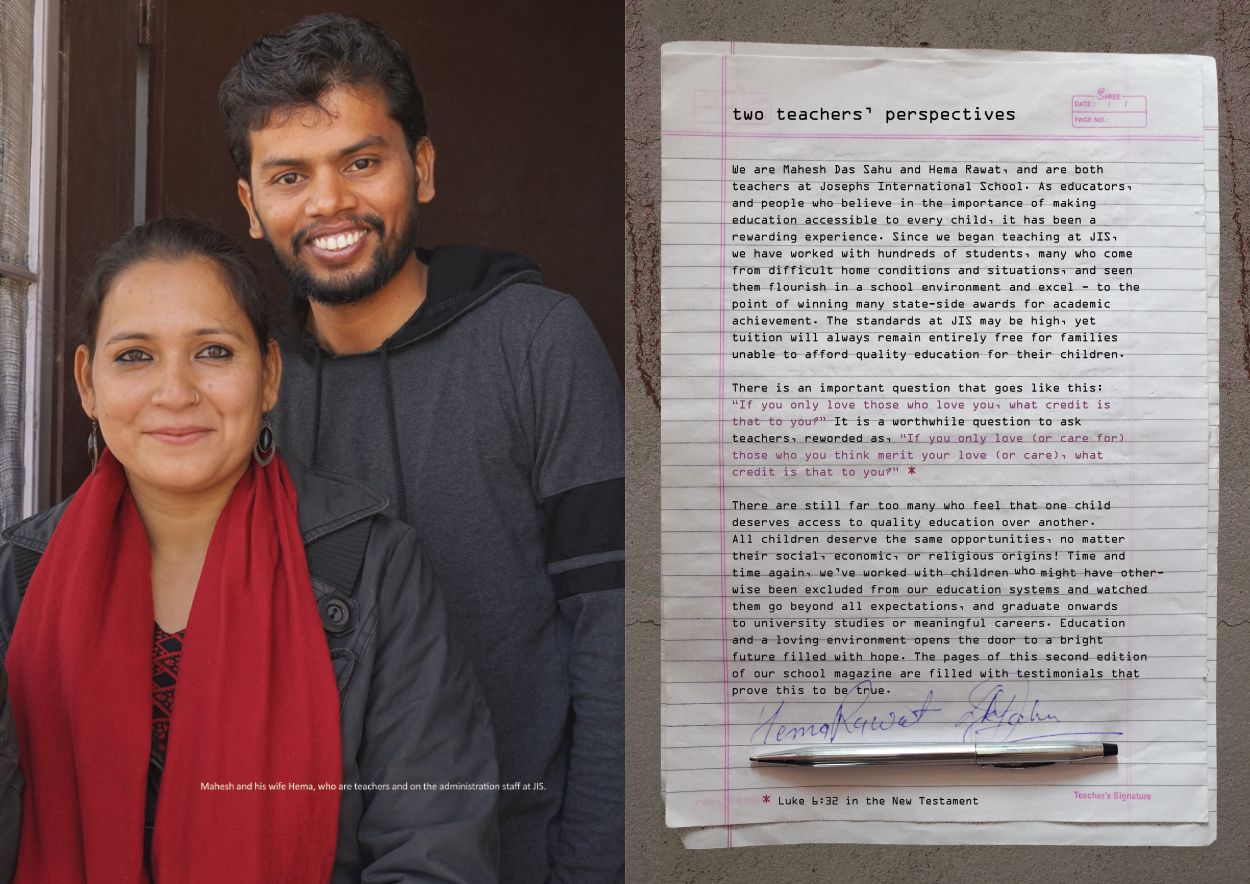 Mahesh and his wife Hema, who are teachers and on the administration staff at JIS.
SHREE
DATE : / /
PAGE NO. :
two teachers' perspectives
We are Mahesh Das Sahu and Hema Rawat, and are both
teachers at Josephs International School. As educators,
and people who believe in the importance of making
education accessible to every child, it has been a
rewarding experience. Since we began teaching at JIS,
we have worked with hundreds of students, many who come
from difficult home conditions and situations, and seen
them flourish in a school environment and excel - to the
point of winning many state-side awards for academic
achievement. The standards at JIS may be high, yet
tuition will always remain entirely free for families
unable to afford quality education for their children.
There is an important question that goes like this:
"If you only love those who love you, what credit is
that to you?" It is a worthwhile question to ask
teachers, reworded as, "If you only love (or care for)
those who you think merit your love (or care), what
credit is that to you?" *
There are still far too many who feel that one child
deserves access to quality education over another.
All children deserve the same opportunities, no matter
their social, economic, or religious origins! Time and
time again, we've worked with children who might have other-
wise been excluded from our education systems and watched
them go beyond all expectations, and graduate onwards
to university studies or meaningful careers. Education
and a loving environment opens the door to a bright
future filled with hope. The pages of this second edition
of our school magazine are filled with testimonials that
prove this to be true.
Hema Rawat
* Luke 6:32 in the New Testament
Teacher's Signature